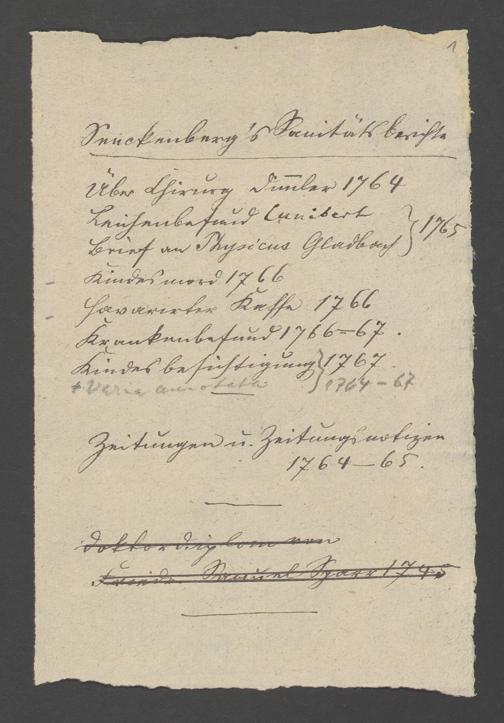 1
Senckenberg's Sanitätsberichte
Über Chirurg Dimler 1764
Leichenbefund Cunibert } 1765
Brief an Physicus Gladbach
Kindesmord 1766
Havarirter Kaffe 1766
Krankenbefund 1766–67.
Kindesbesichtigung 1767
+ Varia annotata } 1764–67
Zeitungen u. Zeitungsnotizen
1764–65.
Doktordiplom von
Friedr. Samuel 1745